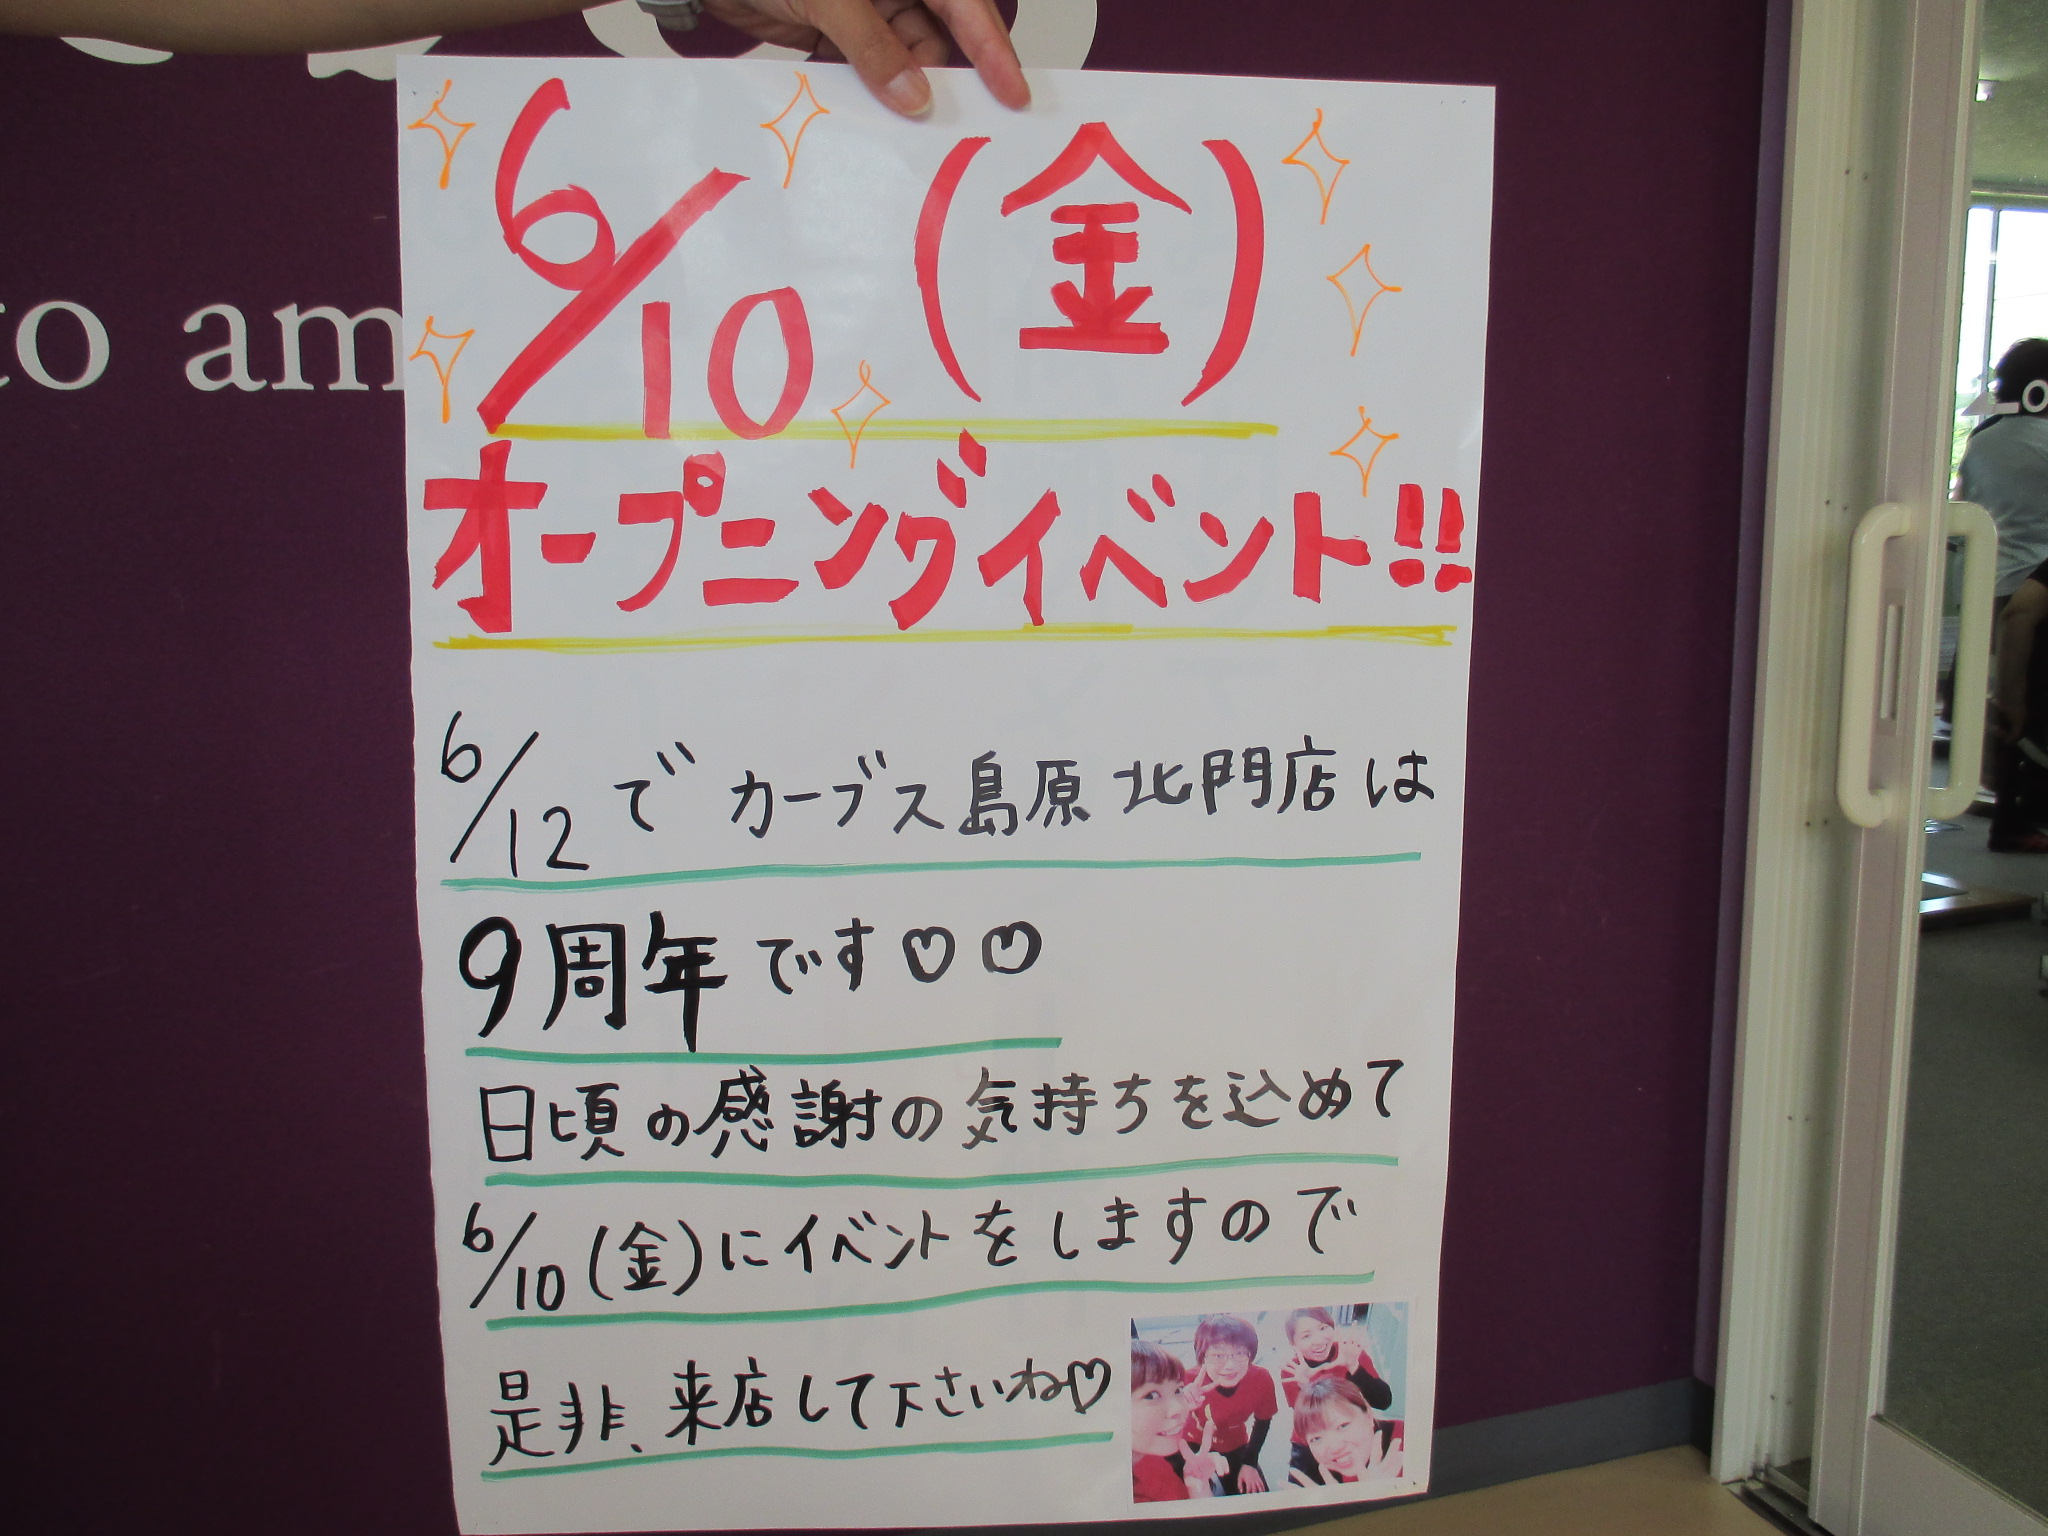 to am
6/10（金）
オープニングイベント!!
6/12でカーブス島原北門店は
9周年です♡♡
日頃の感謝の気持ちを込めて
6/10（金）にイベントをしますので
是非、来店して下さいね♡